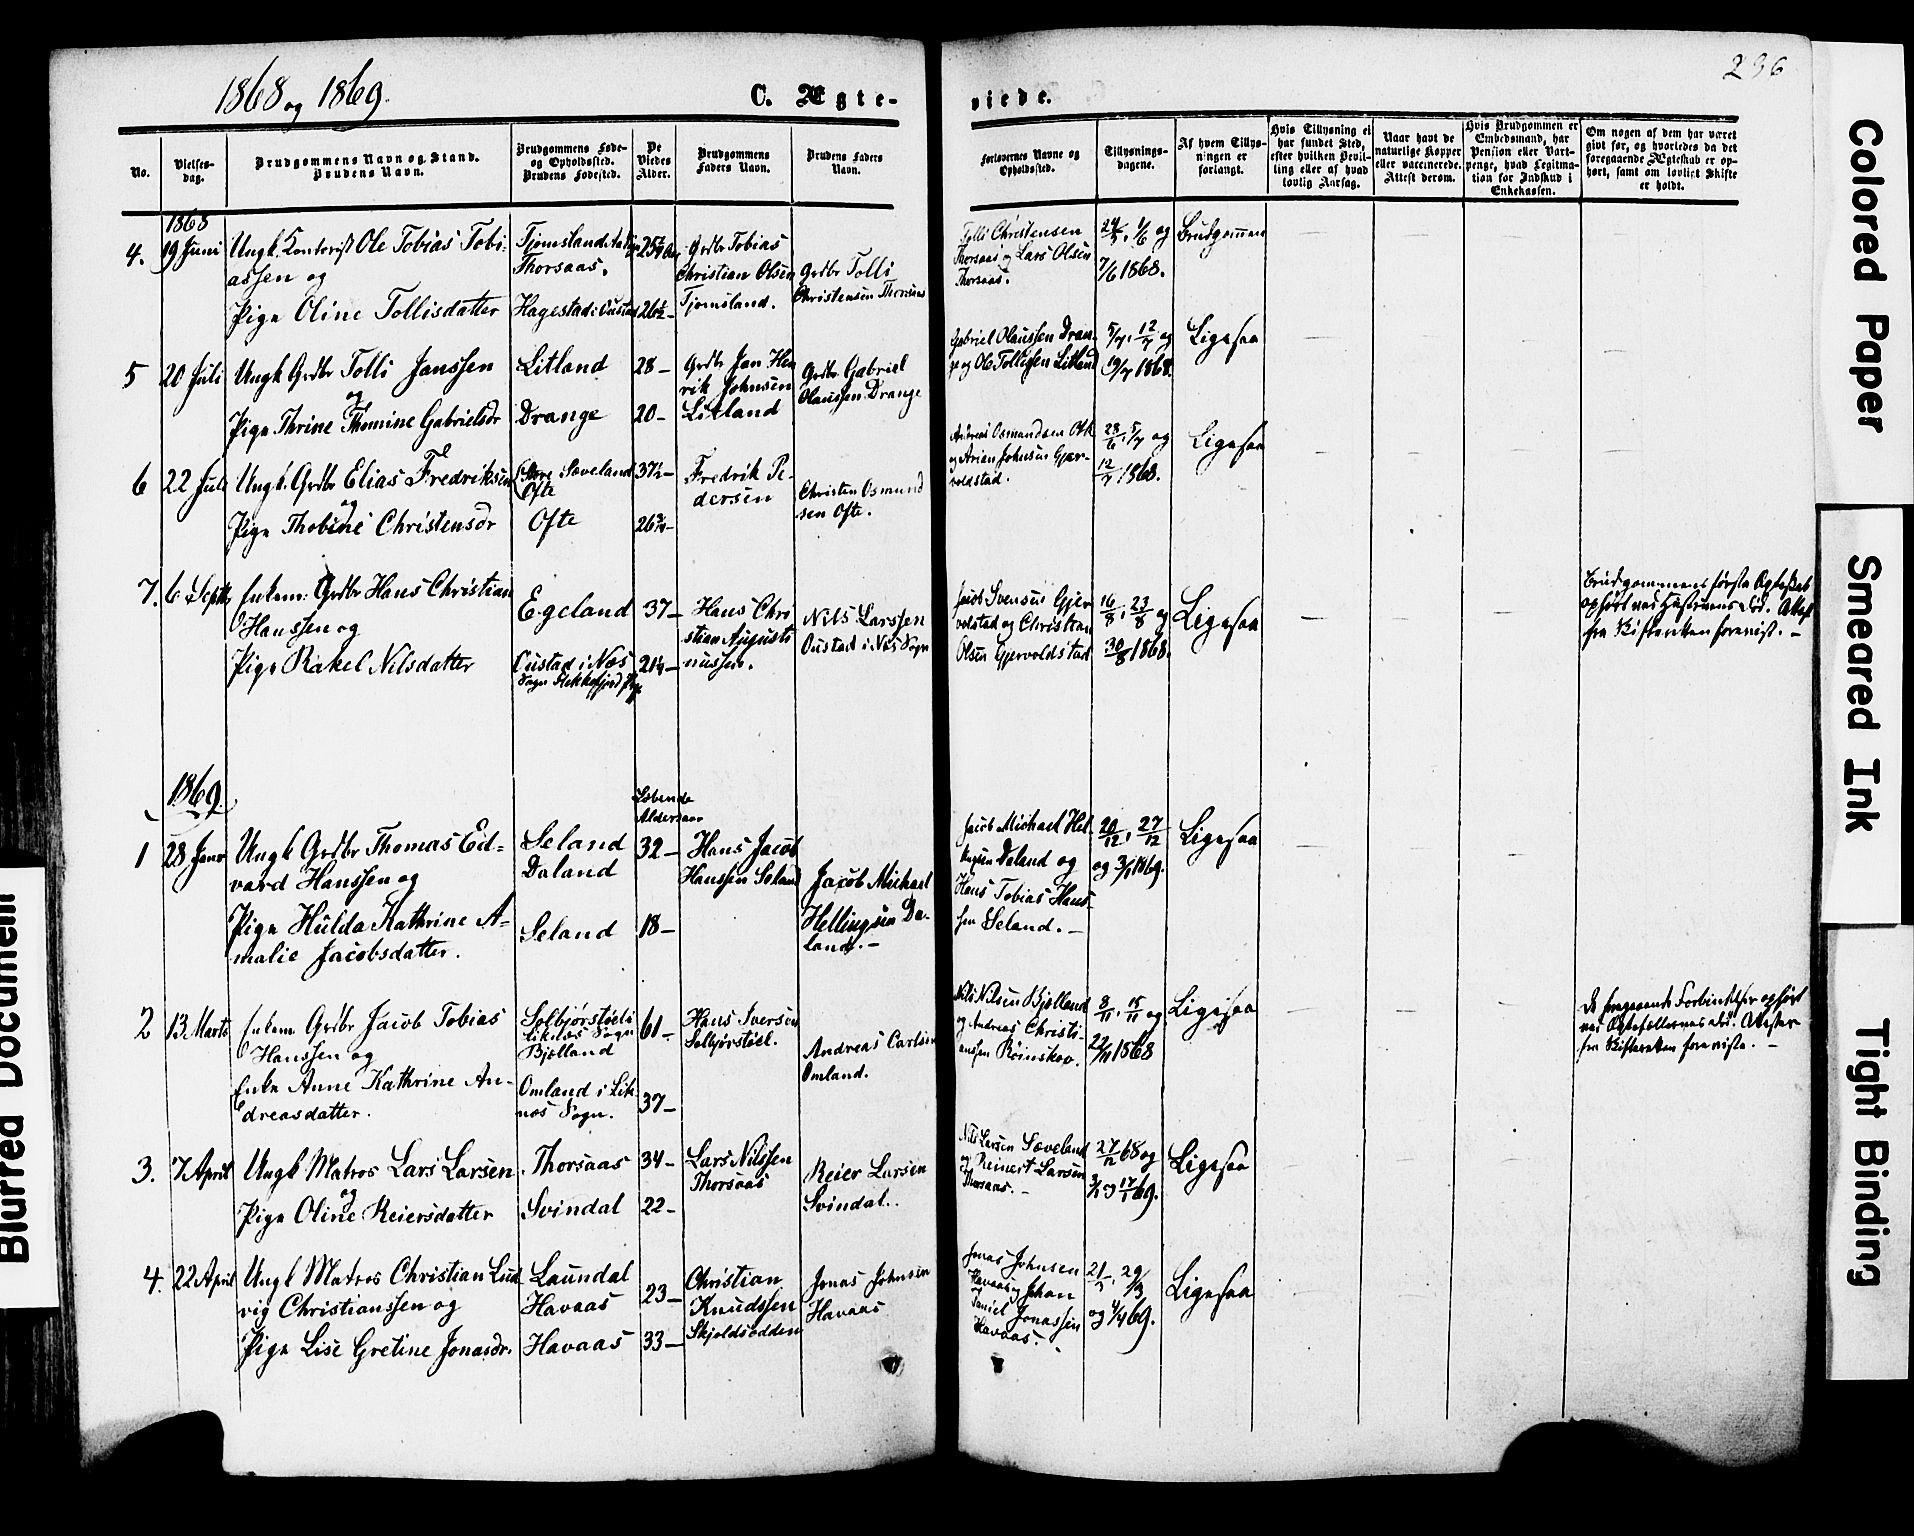 1868 og 1869.
C. Ægte-
viede.
236
No.
Vielses-
dag.
Brudgommens Navn og Stand.
Brudens Navn.
Brudgommens Føde-
og Opholdssted.
Brudens Fødested.
De
Viedes
Alder.
Brudgommens
Faders Navn.
Brudens Faders
Navn.
Forlovernes Navne og
Opholdssted.
Tillysnings-
dagene.
Af hvem Tillys-
ningen er
forlangt.
Hvis Tillysning ei
har fundet Sted,
efter hvilken Bevil-
ling eller af hvad
lovlig Aarsag.
Naar havt de
naturlige Kopper
eller vaccinerede.
Attest derom.
Hvis Brudgommen er
Embedsmand, har
Pension eller Vart-
penge, hvad Legitima-
tion for Indskud i
Enkekassen.
Om nogen af dem har været
givt før, og hvorledes da det
foregaaende Ægteskab er op-
hørt, samt om lovligt Skifte
er holdt.
1868
4. 19 Juni
Ungk. Kontorist Ole Tobias Tobi-
assen og
Pige Oline Tollisdatter
Tjomsland
Thorsaas.
Hagestad i
26½ –
Grdbr Tobias
Christian Olsen
Tjomsland.
Grdbr Tolli
Christensen Thorsaas
Tolli Christensen
Thorsaas og Lars Olsen
Thorsaas.
24/5, 1/6 og
7/6 1868.
Brudgommen
5 20 Juli
Ungk Grdbr Tolli Janssen
og
Pige Thrine Thomine Gabrielsdr
Litland
Drange
28 –
20 –
Grdbr Jan Hen
rik Johnsen
Litland
Grdbr Gabriel
Olaussen Drange
Gabriel Olaussen Dran-
ge og Ole Tollissen Litland
5/7, 12/7 og
19/7 1868.
Ligesaa
6 22 Juli
Ungk. Grdbr Elias Fredriksen
og
Pige Thobine Christensdr
Store Sæveland
Ofte
Ofte
37½ –
26¾ –
Fredrik Pe-
dersen
Christen Osmund
sen Ofte.
Andreas Osmundsen Ofte
og Arian Johnsen Gjer-
voldstad.
28/6, 5/7 og
12/7 1868.
Ligesaa
7. 6 Septbr
Enkem: Grdbr Hans Christian
Hanssen og
Pige Rakel Nilsdatter
Egeland
Custad i Næs
Sogn Flekkefjord
37 –
21¼ –
Hans Chri
stian Augusti
nussen.
Nils Larssen
Oustad i Næs Sogn
Jacob Svensen Gjer
voldstad og Christian
Olsen Gjervoldstad
16/8, 23/8 og
30/8 1868.
Ligesaa
Brudgommens første Ægteskab
ophørt ved Hustruens Død. Attest
fra Skifteretten forevist. –
1869.
Løbende
Aldersaar
1 28 Janr
Ungk Grdbr Thomas Ed-
vard Hanssen og
Pige Hulda Kathrine A-
malie Jacobsdatter.
Seland
Daland
Seland
32 –
18 –
Hans Jacob
Hanssen Seland
Jacob Michael
Hellingsen Da-
land. –
Jacob Michael Hel-
lingsen Daland og
Hans Tobias Hans-
sen Seland. –
20/12, 27/12
og 3/1 1869.
Ligesaa
2 13 Marts
Enkem Grdbr Jacob Tobias
Hanssen og
Enke Anne Kathrine An-
dreasdatter.
Selbjørstiel i
Liknæs Sogn
Bjelland
Omland i Lik-
næs Sogn.
61 –
37 –
Hans Iversen
Selbjørstiel.
Andreas Carlsen
Omland.
Nils Nilsen Bjelland
og Andreas Christi-
anssen Røinskov.
8/11, 15/11 og
22/11 1868
Ligesaa
De foregaaende Forbindelser ophørt
ved Ægtefællernes Død. Attester
fra Skifteretten foreviste. –
3. 7 April
Ungk Matros Lars Larsen
og
Pige Oline Reiersdatter
Thorsaas
Svindal
34 –
22 –
Lars Nilssen
Thorsaas
Reier Larsen
Svindal.
Nils Larsen Sæveland
og Reinert Larsen
Thorsaas. –
27/12 68 og
3/1 og 17/1 69.
Ligesaa
4. 22 April
Ungk Matros Christian Lud
vig Christianssen og
Pige Lise Gretine Jonasdr.
Laundal
Havaas
Havaas
23 –
33 –
Christian
Knudssen
Skjoldsodden
Jonas Johnsen
Havaas
Jonas Johnsen
Havaas og Johan
Daniel Jonassen
Havaas.
21/3, 29/3
og 4/4 69.
Ligesaa
Colored Paper
Smeared Ink
Tight Binding
Blurred Document